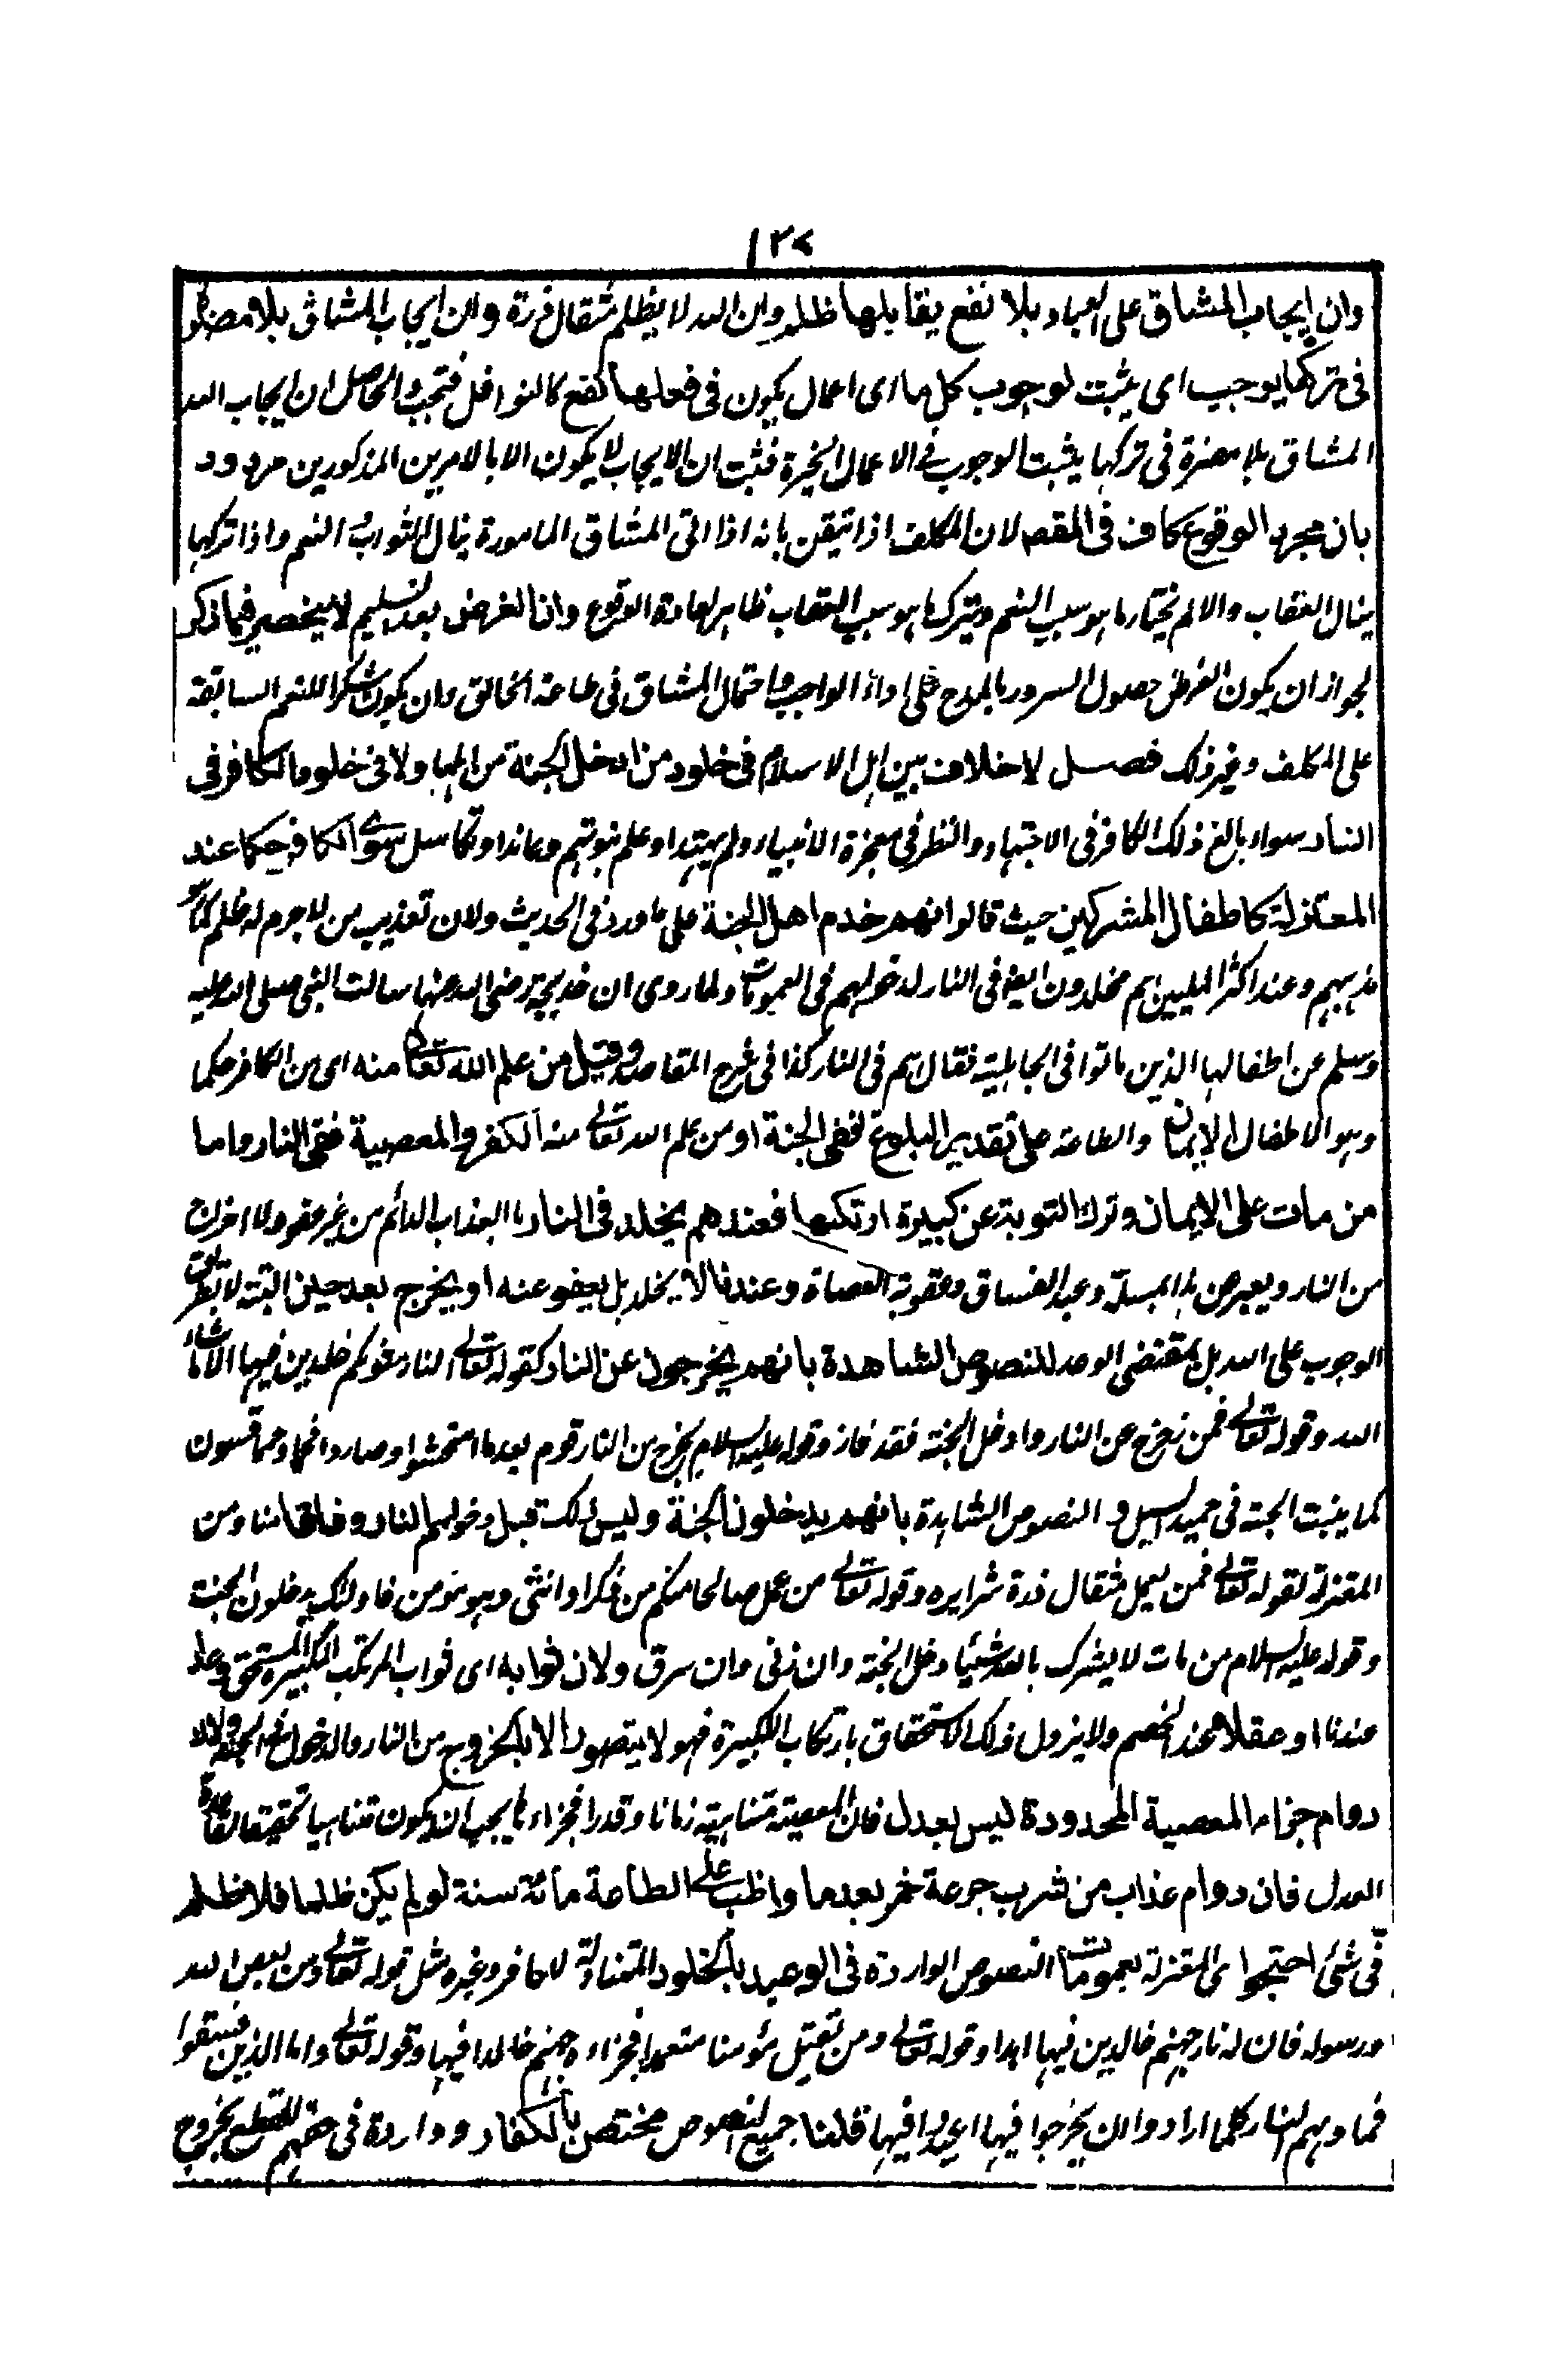 ١٣٧
وان ايجاب المشاق على العباد بلا نفع يقابلها ظلم وان الله لا يظلم مثقال ذرة وان ايجاب المشاق بلا مضرة
فى تركها يوجب اى يثبت لوجوب كل ما اى اعمال يكون فى فعلها نفع كالنوافل فتجب والحاصل ان ايجاب الله
المشاق بلا مضرة فى تركها يثبت الوجوب فى الاعمال الخيرة فثبت ان الايجاب لا يكون الا بالامرين المذكورين مردود
بان مجرد الوقوع كاف فى المقصد لان المكلف اذا تيقن بانه اذا اتى المشاق المامورة ينال الثواب النعم واذا تركها
ينال العقاب والالم يختار ما هو سبب النعم ويترك ما هو سبب العقاب ظاهر لعادة الوقوع وان الغرض بعد تسليم لا ينحصر فيما ذكر
لجواز ان يكون الغرض حصول السرور بالمدح على اداء الواجب واحتمال المشاق فى طاعة الخالق وان يكون شكرا للنعم السابقة
على المكلف وغير ذلك فصل لا خلاف بين اهل الاسلام فى خلود من ادخل الجنة من اهلها ولا فى خلود الكافر فى
النار سواء بالغ ذلك الكافر فى الاجتهاد والنظر فى معجزة الانبياء ولم يهتد او علم نبوتهم وعاند او تكاسل سوى الكافر حكما عند
المعتزلة كاطفال المشركين حيث قالوا انهم خدم اهل الجنة على ما ورد فى الحديث ولان تعذيب من لا جرم له ظلم كما هو
مذهبهم وعند اكثر المليين هم مخلدون ايضا فى النار لدخولهم فى العمومات ولما روى ان خديجة رضى الله عنها سالت النبى صلى الله عليه
وسلم عن اطفالها الذين ماتوا فى الجاهلية فقال هم فى النار كذا فى شرح المقاصد وقيل من علم الله تعالى منه اى من الكافر حكما
وهو الاطفال الايمان والطاعة على تقدير البلوغ ففى الجنة او من علم الله تعالى منه الكفر والمعصية ففى النار واما
من مات على الايمان وترك التوبة عن كبيرة ارتكبها فعندهم يخلد فى النار بالعذاب الدائم من غير عفو ولا اخراج
من النار ويعبر عن هذا بمسئلة وعيد الفساق وعقوبة العصاة وعندنا لا يخلد بل يعفو عنه او يخرج بعد حين البتة لا بطريق
الوجوب على الله بل بمقتضى الوعد للنصوص الشاهدة بانهم يخرجون عن النار كقوله تعالى النار مثوىكم خلدين فيها الا ما شاء
الله وقوله تعالى فمن زحزح عن النار وادخل الجنة فقد فاز وقوله عليه السلام يخرج من النار قوم بعد ما امتحشوا وصاروا فحما وحمما فينبتون
كما ينبت الحبة فى حميل السيل و النصوص الشاهدة بانهم يدخلون الجنة وليس ذلك قبل دخولهم النار وفاقا منا ومن
المعتزلة لقوله تعالى فمن يعمل مثقال ذرة شرا يره وقوله تعالى من عمل صالحا منكم من ذكر او انثى وهو مؤمن فاولئك يدخلون الجنة
وقوله عليه السلام من مات لا يشرك بالله شيئا دخل الجنة وان زنى وان سرق ولان ثوابه اى ثواب المرتكب الكبيرة المستحق وعدا
عندنا او عقلا عند الخصم ولا يزول ذلك الاستحقاق بارتكاب الكبيرة فهو لا يتصور الا بالخروج من النار والدخول فى الجنة ولان
دوام جزاء المعصية المحدودة ليس بعدل فان المعصية متناهية زمانا وقدرا فجزاءها يجب ان يكون متناهيا تحقيقا لقاعدة
العدل فان دوام عذاب من شرب جرعة خمر بعدما واظب على الطاعة مائة سنة لو لم يكن ظلما فلا ظلم
فى شئ احتجوا اى المعتزلة بعمومات النصوص الواردة فى الوعيد بالخلود المتناولة للكافر وغيره مثل قوله تعالى ومن يعص الله
ورسوله فان له نار جهنم خالدين فيها ابدا وقوله تعالى ومن يقتل مؤمنا متعمدا فجزاءه جهنم خالدا فيها وقوله تعالى واما الذين فسقوا
فماوىهم النار كلما ارادوا ان يخرجوا فيها اعيدوا فيها قلنا جميع النصوص مختص بالكفار وواردة فى حقهم للقطع بخروج